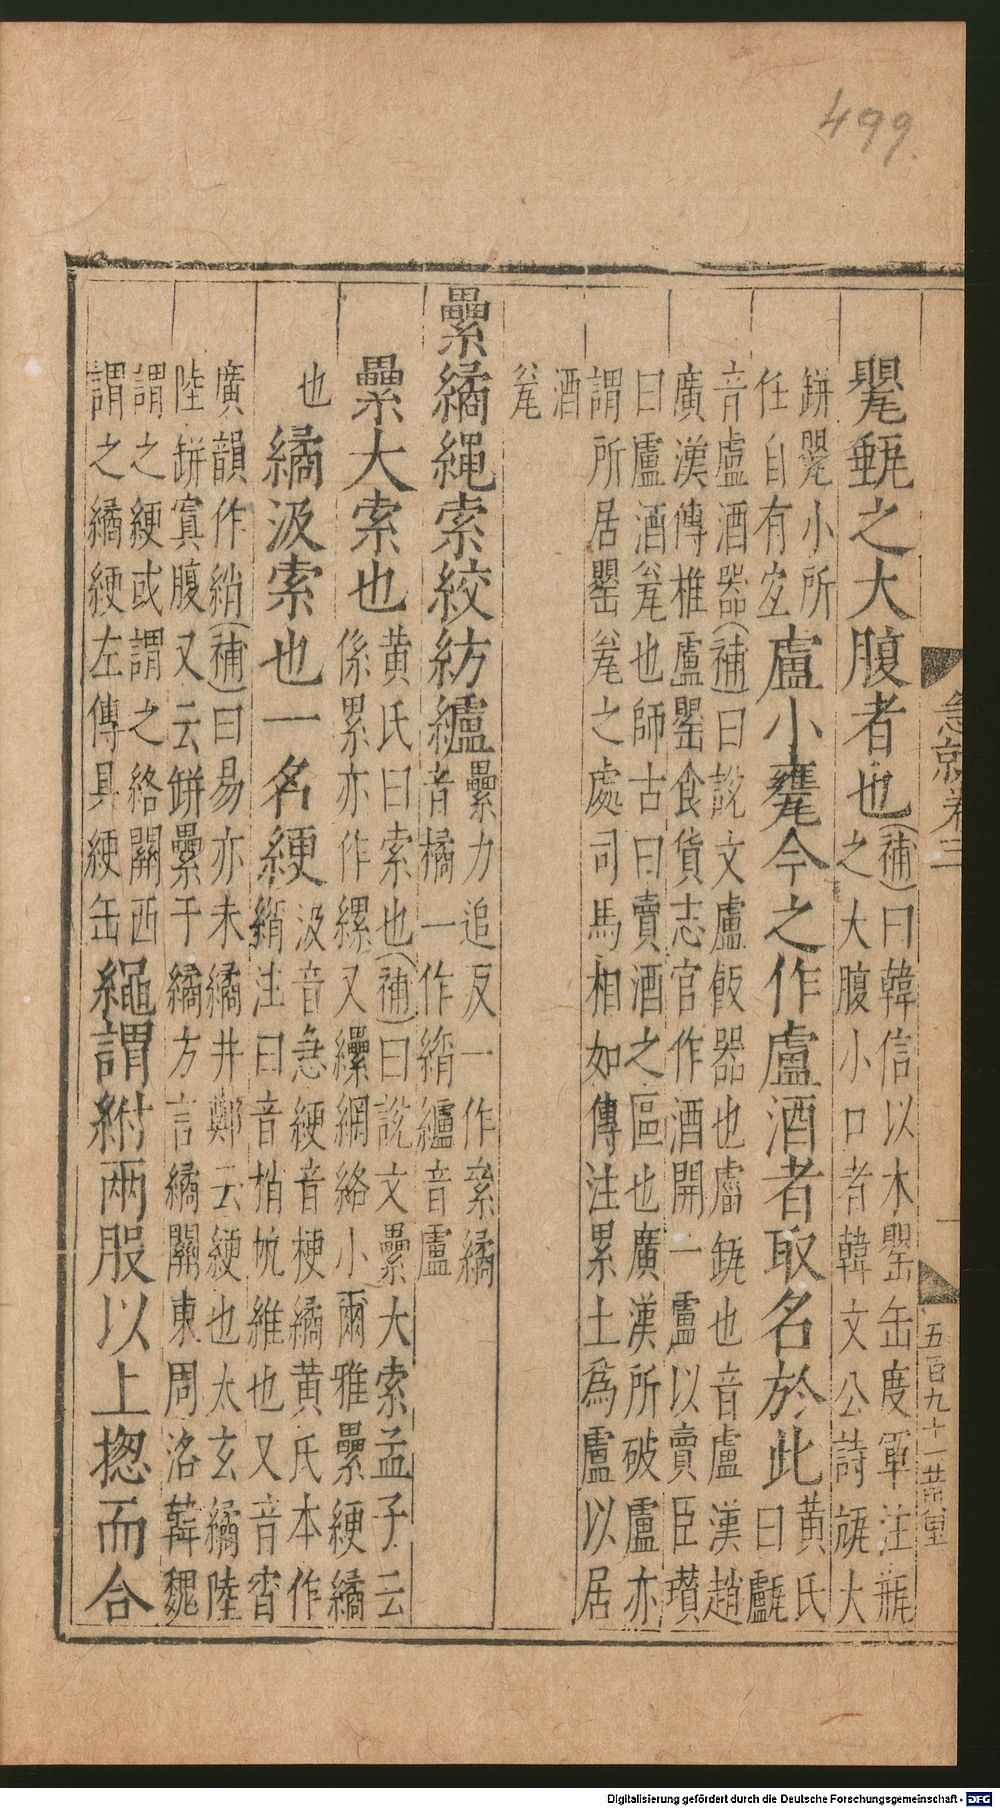 499.
急就卷三
五百九十一
甖甀之大腹者也(補)曰韓信以木罌缶度軍注瓶
之大腹小口者韓文公詩瓬大
缾甖小所
任自有定盧小甕今之作盧酒者取名於此黄氏
曰甗
音盧酒器(補)曰說文盧飯器也𧇄䥐也音盧漢趙
廣漢傳椎盧罌食貨志官作酒開一盧以賣臣瓚
曰盧酒瓮也師古曰賣酒之區也廣漢所破盧亦
謂所居罌瓮之處司馬相如傳注累土爲盧以居
酒
瓮
纍繘繩索絞紡纑纍力追反一作絫繘
音橘一作絹纑音盧
纍大索也黄氏曰索也(補)曰說文纍大索孟子云
係累亦作縲又纝網絡小爾雅纍綆繘
也繘汲索也一名綆汲音急綆音梗繘黄氏本作
絹注曰音梢㠶維也又音宵
廣韻作綃(補)曰易亦未繘井鄭云綆也太玄繘陸
陸缾寘腹又云缾纍于繘方言繘關東周洛韓魏
謂之綆或謂之絡關西
謂之繘綆左傳具綆缶繩謂紨兩股以上揔而合
Digitalisierung gefördert durch die Deutsche Forschungsgemeinschaft - DFG